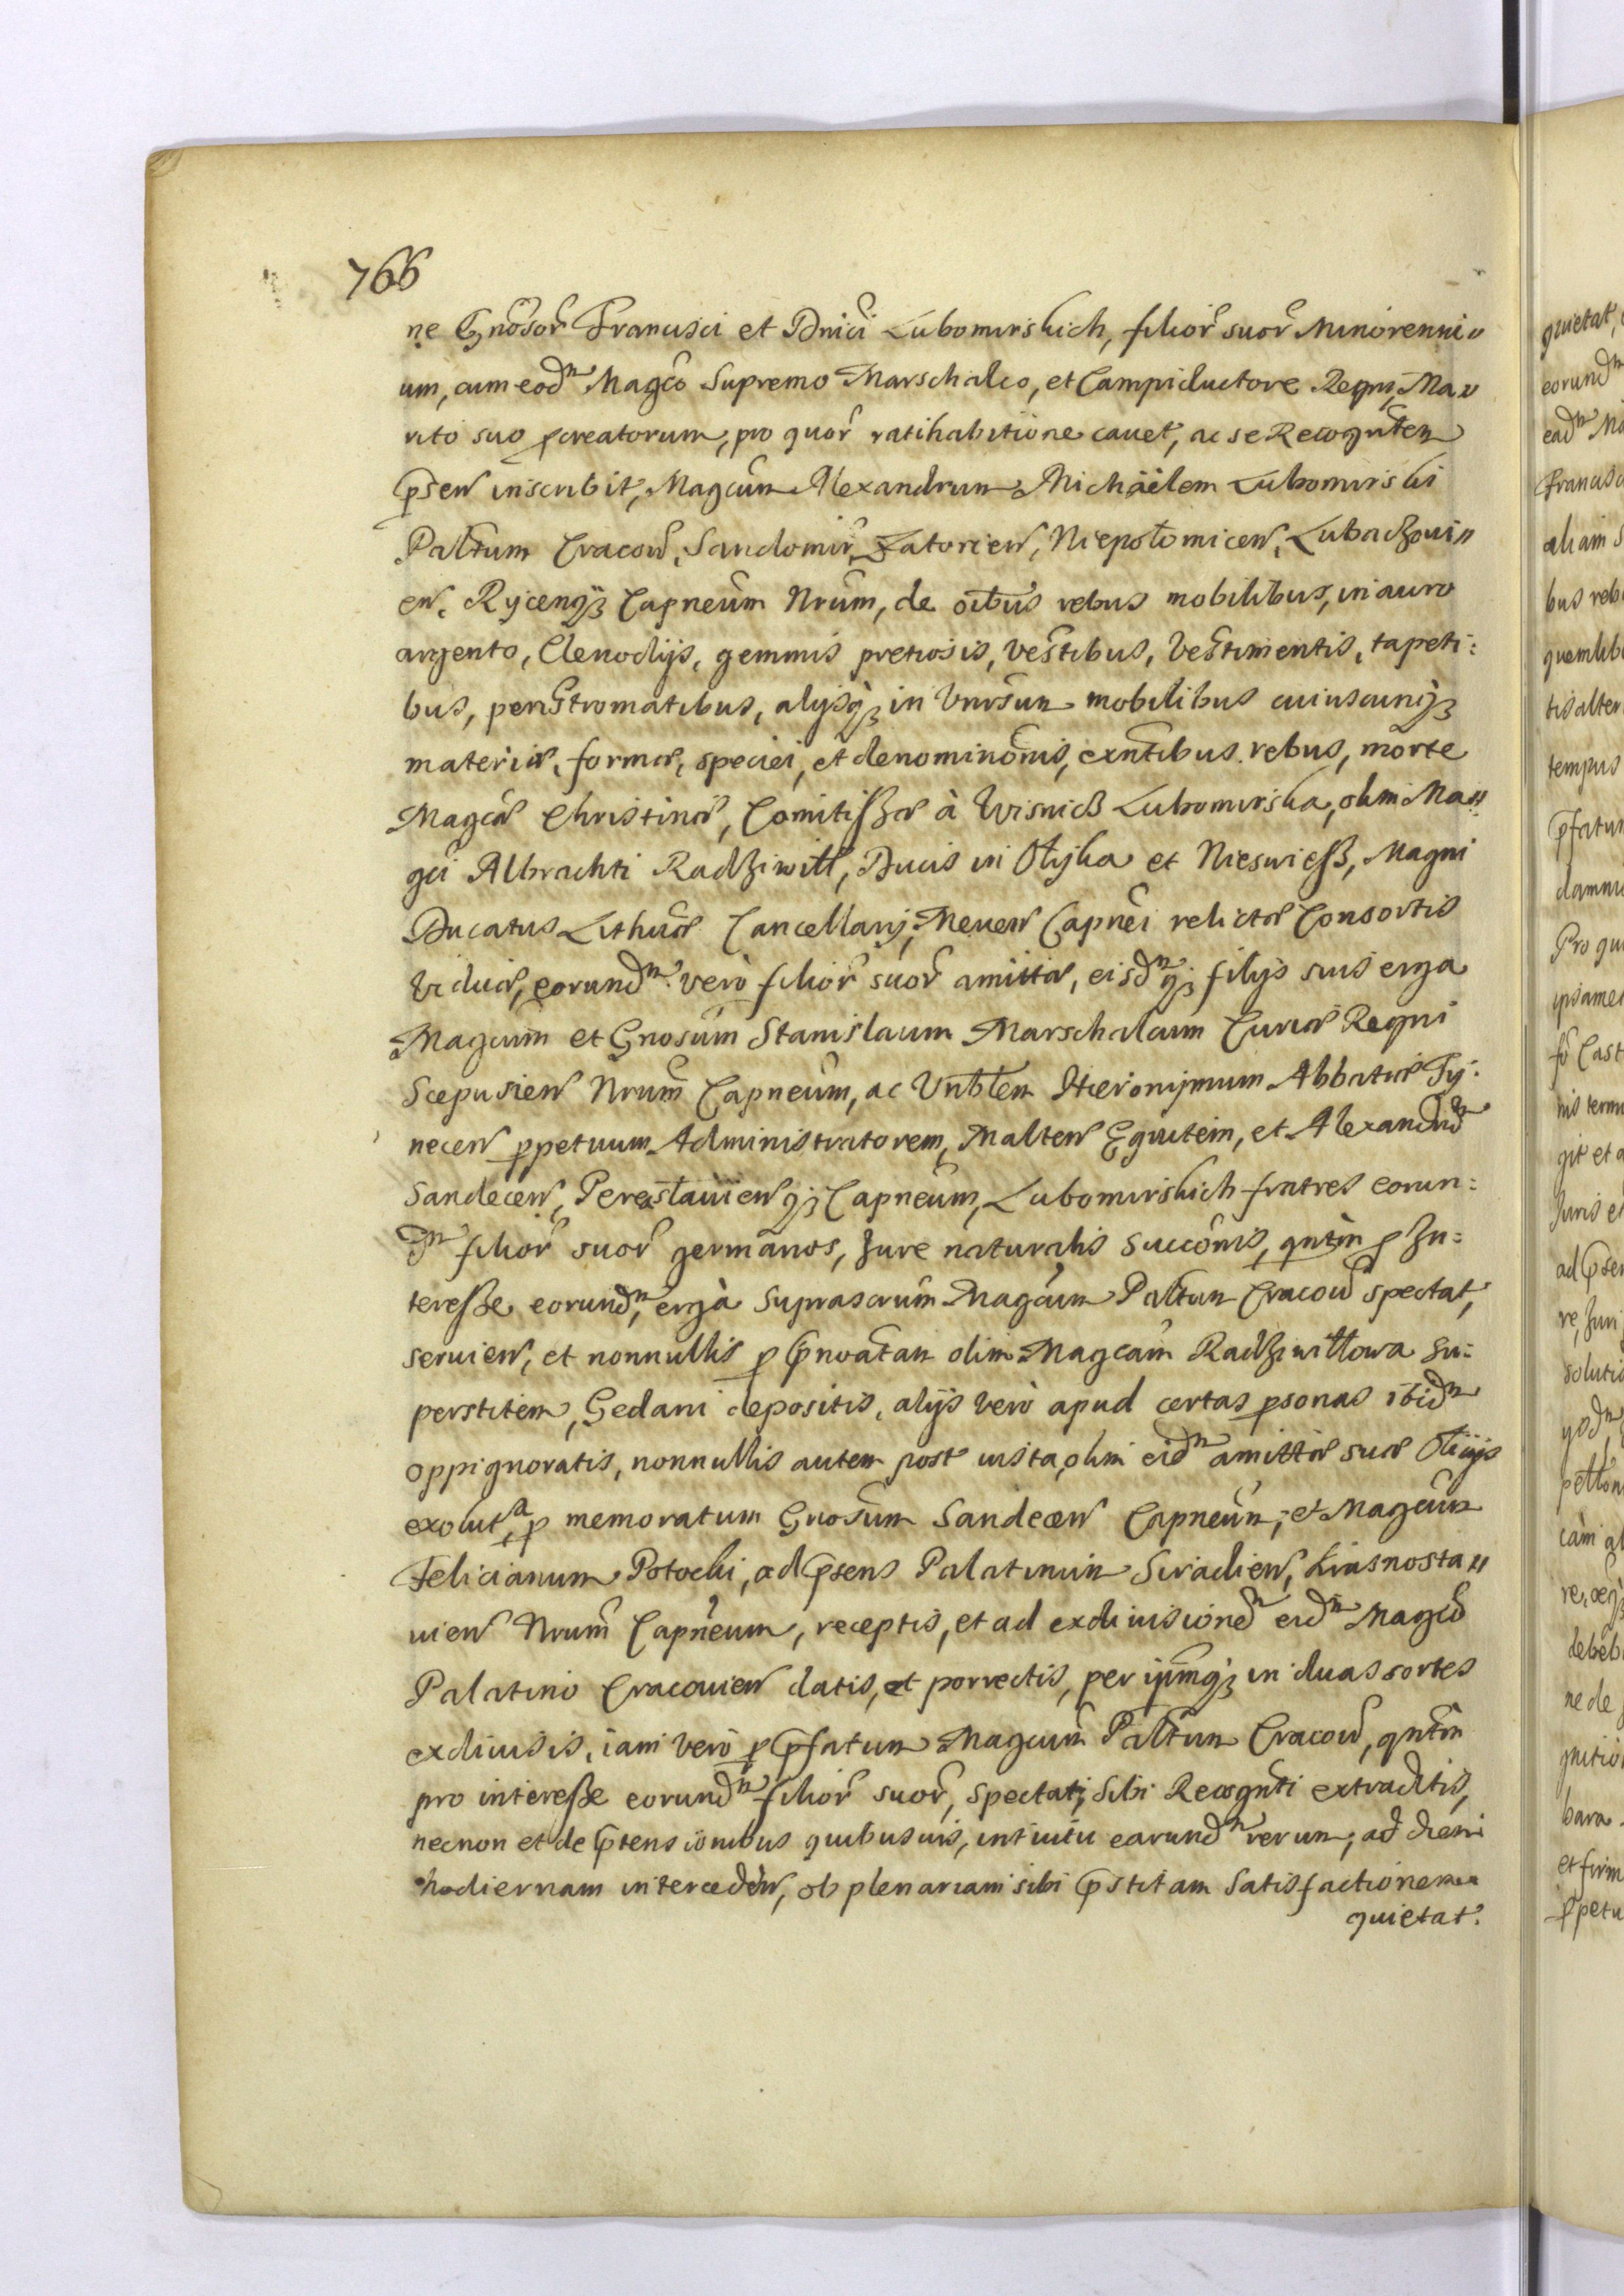 766
ne Gnosor Francisci et Dnici Lubomirskich, filior suor Minorenni„
um, cum eodn Magco Supremo Marschalco, et Campiductore Regni, Ma„
rito suo pcreatorum, pro quor ratihabitione cavet, ac se Recogntem
psen inscribit, Magcum Alexandrum Michäelem Lubomirski
Paltum Cracou, Sandomir, Zatorien, Niepołomicen, Lubaczoui„
en, Rycenqȝ Capneum Nrum, de oibus rebus mobilibus, in auro
argento, Clenodijs, gemmis pretiosis, vestibus, Vestimentis, tapeti:
bus, peristromatibus, alijsqȝ in Vnirsum mobilibus cuiuscunqȝ
materiæ, formæ, speciei, et denominonis, exntibus rebus, morte
Magcæ Christinæ, Comitißæ à Wisnicz Lubomirska, olim Ma„
gci Albrachti Radziwiłł, Ducis in Ołyka et Nieswieß, Magni
Ducatus Lithuæ Cancellarij, Meuen Capnei relictæ Consortis
Viduæ, eorundn vero filior suor amittæ, eisdnqȝ filijs suis erga
Magcum et Gnosum Stanislaum Marschalcum Curiæ Regni
Scepusien Nrum Capneum, ac Vnblem Hieronymum Abbatiæ Ty:
necen ppetuum Administratorem, Malten Equitem, et Alexandrũ
Sandecen, Peresłauienqȝ Capneum, Lubomirskich fratres eorun:
dn filior suor germanos, Jure naturalis Succonis, qntum p In:
tereße eorundn, erga Suprascrum Magcum Paltum Cracou spectat,
seruien, et nonnullis p pnoatam olim Magcam Radziwiłłowa su:
perstitem, Gedani depositis, alijs vero apud certas psonas ibidn
oppignoratis, nonnullis autem post iusta, olim eidn amittæ suæ
exoluta, p memoratum Gnosum Sandecen Capneum, et Magcum
Felicianum Potocki, ad psens Palatinum Siradien, Krasnosta„
uien Nrum Capneum, receptis, et ad exdiuisioned eidn Magco
Palatino Cracouien datis, et porrectis, per ipmqȝ in duas sortes
exdiuisis, iam vero p pfatum Magcum Paltum Cracou, qntum
pro intereße eorundn filior suor, spectat, sibi Recognti extraditis,
necnon et de ptensionibus quibusuis, intuitu earundn rerum, ad diem
hodiernam interceden, ob plenariam sibi pstitam Satisfactionem
quietat.